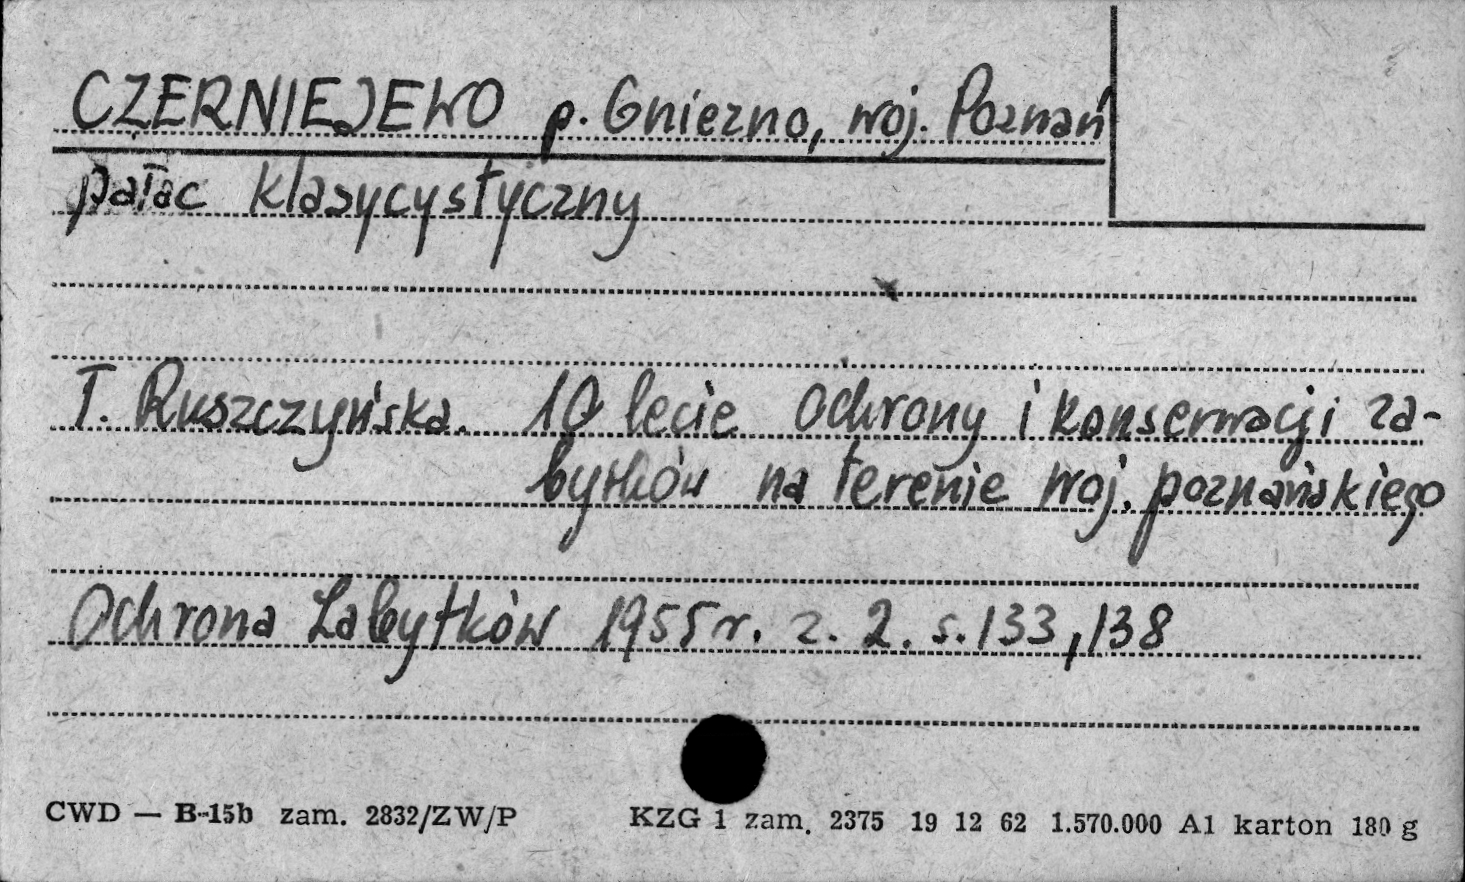 CZERNIEJEWO p. Gniezno, woj. Poznań
pałac klasycystyczny
T. Ruszczyńska. 10 lecie ochrony i konserwacji za-
bytków na terenie woj. poznańskiego
Ochrona Zabytków 1955 r. z. 2. s. 133, 138
CWD — B-15b zam. 2832/ZW/P KZG 1 zam. 2375 19 12 62 1.570.000 A1 karton 180 g